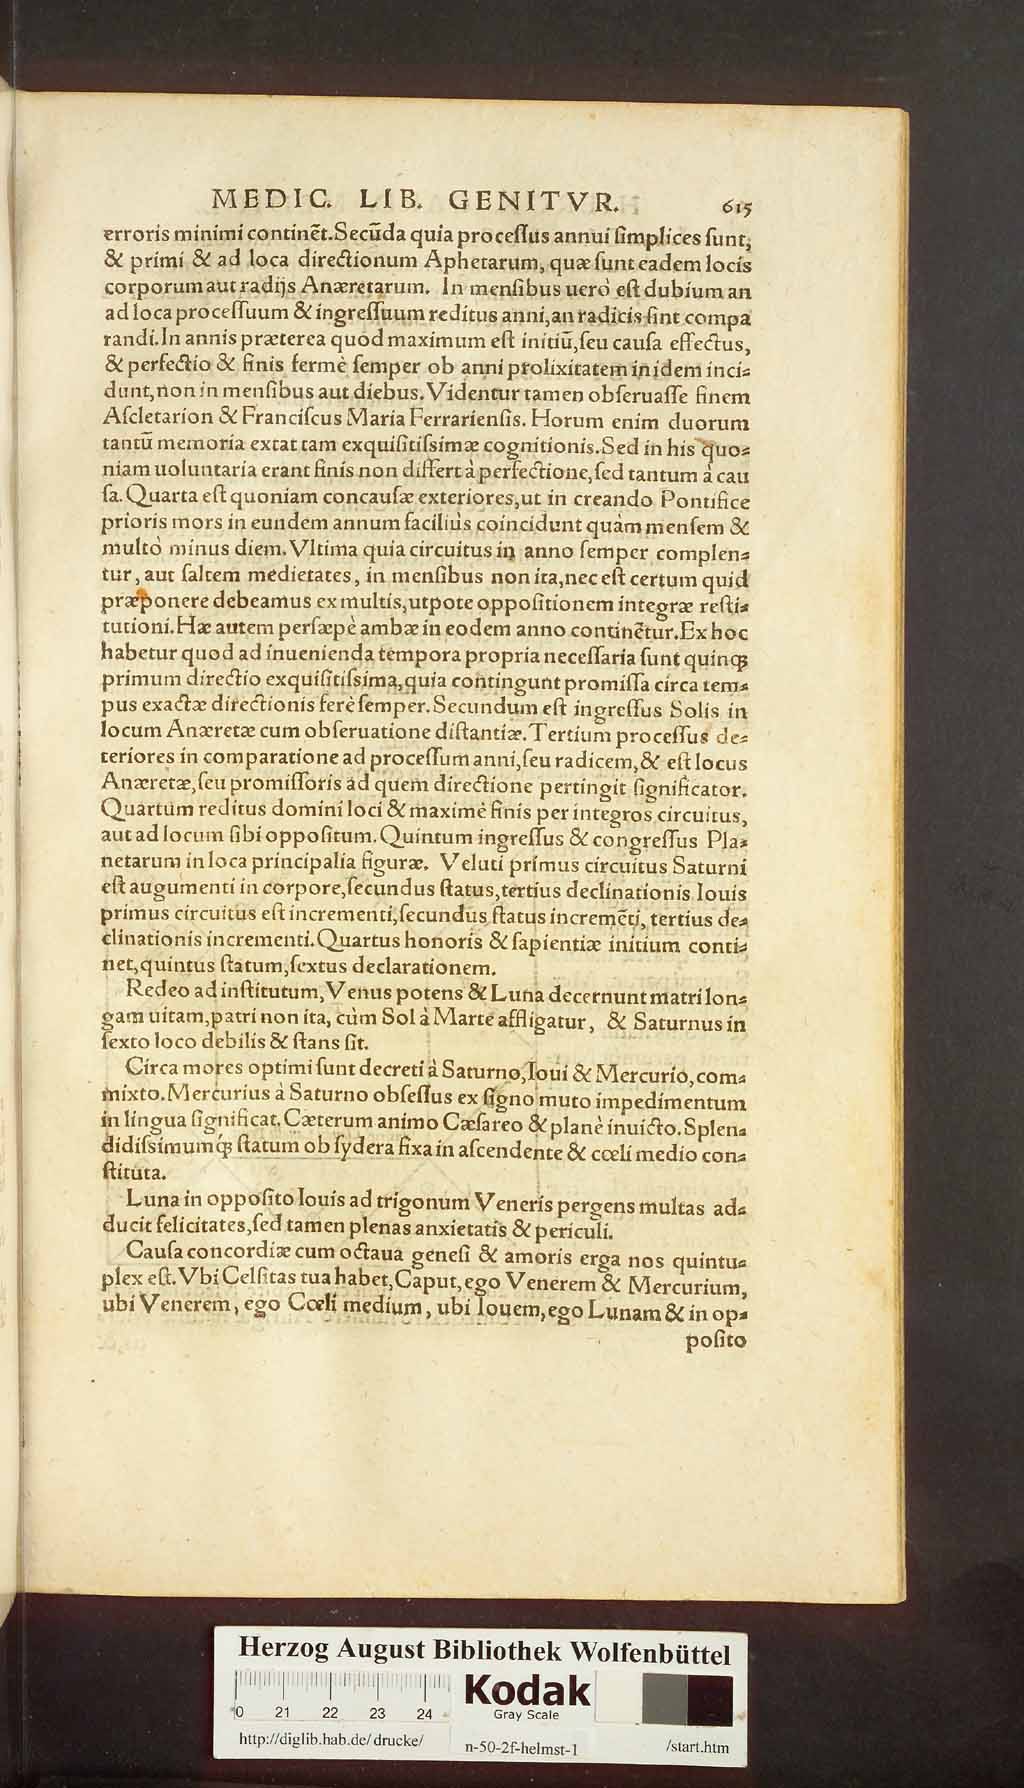 MEDIC. LIB. GENITVR. 615
erroris minimi continēt. Secūda quia processus annui simplices sunt,
& primi & ad loca directionum Aphetarum, quæ sunt eadem locis
corporum aut radijs Anæretarum. In mensibus uerò est dubium an
ad loca processuum & ingressuum reditus anni, an radicis sint compa
randi. In annis præterea quòd maximum est initiū, seu causa effectus,
& perfectio & finis fermè semper ob anni prolixitatem in idem inci⸗
dunt, non in mensibus aut diebus. Videntur tamen obseruasse finem
Ascletarion & Franciscus Maria Ferrariensis. Horum enim duorum
tantū memoria extat tam exquisitissimæ cognitionis. Sed in his quo⸗
niam uoluntaria erant finis non differt à perfectione, sed tantum à cau
sa. Quarta est quoniam concausæ exteriores, ut in creando Pontifice
prioris mors in eundem annum facilius coincidunt quàm mensem &
multò minus diem. Vltima quia circuitus in anno semper complen⸗
tur, aut saltem medietates, in mensibus non ita, nec est certum quid
præponere debeamus ex multis, utpote oppositionem integræ resti⸗
tutioni. Hæ autem persæpè ambæ in eodem anno continētur. Ex hoc
habetur quod ad inuenienda tempora propria necessaria sunt quinqꝫ
primum directio exquisitissima, quia contingunt promissa circa tem⸗
pus exactæ directionis ferè semper. Secundum est ingressus Solis in
locum Anæretæ cum obseruatione distantiæ. Tertium processus de⸗
teriores in comparatione ad processum anni, seu radicem, & est locus
Anæretæ, seu promissoris ad quem directione pertingit significator.
Quartum reditus domini loci & maximè finis per integros circuitus,
aut ad locum sibi oppositum. Quintum ingressus & congressus Pla⸗
netarum in loca principalia figuræ. Veluti primus circuitus Saturni
est augumenti in corpore, secundus status, tertius declinationis Iouis
primus circuitus est incrementi, secundus status incremēti, tertius de⸗
clinationis incrementi. Quartus honoris & sapientiæ initium conti⸗
net, quintus statum, sextus declarationem.
Redeo ad institutum, Venus potens & Luna decernunt matri lon⸗
gam uitam, patri non ita, cùm Sol à Marte affligatur, & Saturnus in
sexto loco debilis & stans sit.
Circa mores optimi sunt decreti à Saturno, Ioui & Mercurio, com⸗
mixto. Mercurius à Saturno obsessus ex signo muto impedimentum
in lingua significat. Cæterum animo Cæsareo & planè inuicto. Splen⸗
didissimumqꝫ statum ob sydera fixa in ascendente & cœli medio con⸗
stituta.
Luna in opposito Iouis ad trigonum Veneris pergens multas ad⸗
ducit felicitates, sed tamen plenas anxietatis & periculi.
Causa concordiæ cum octaua genesi & amoris erga nos quintu⸗
plex est. Vbi Celsitas tua habet, Caput, ego Venerem & Mercurium,
ubi Venerem, ego Cœli medium, ubi Iouem, ego Lunam & in op⸗
posito
Herzog August Bibliothek Wolfenbüttel
0 21 22 23 24
Kodak
Gray Scale
http://diglib.hab.de/drucke/ n-50-2f-helmst-1 /start.htm